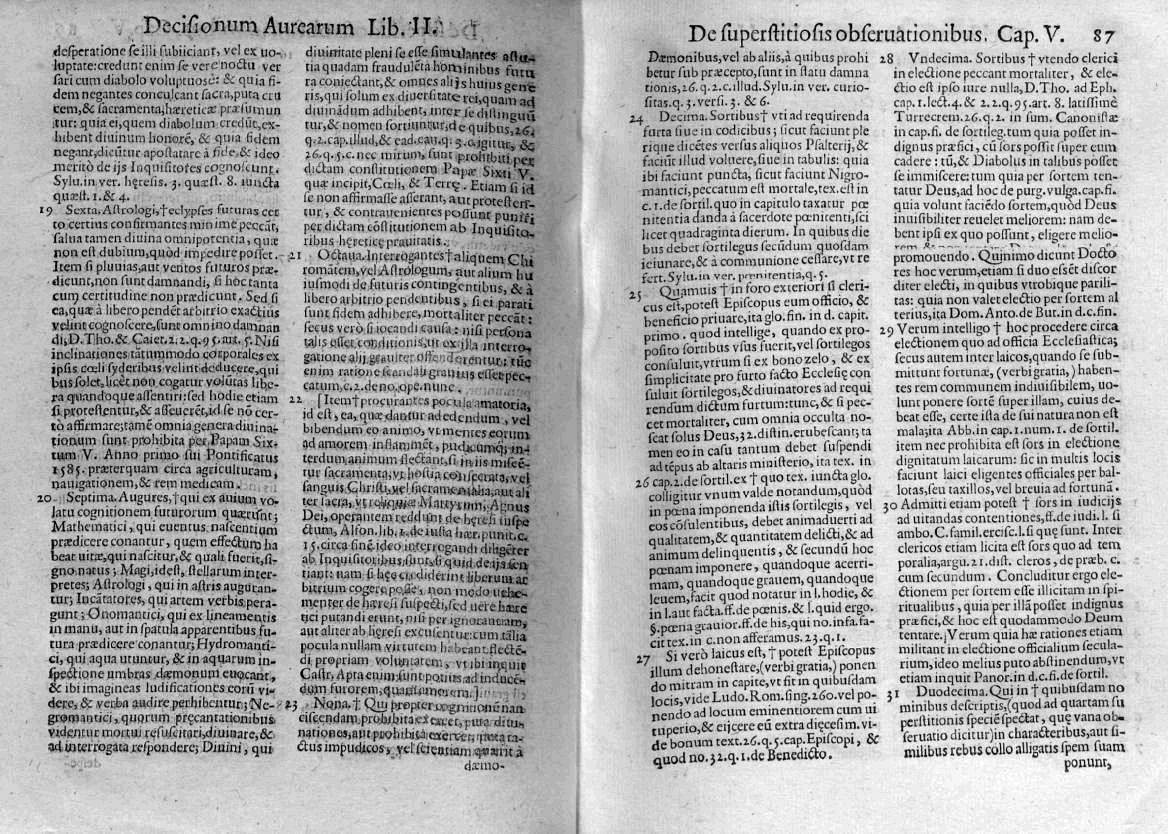 Decisionum Aurearum Lib. II.
desperatione se illi subiiciant, vel ex uo-
luptate: credunt enim se vere noctu ver
sari cum diabolo voluptuosè: & quia fi-
dem negantes conculcant sacra, puta cru
cem, & sacramenta, hæretica præsumun
tur: quia ei, quem diabolum credũt, ex-
hibent diuinum honorẽ, & quia fidem
negant, dicũtur apostatare à fide, & ideo
meritò de ijs Inquisitores cognoscunt.
Sylu. in ver. hęresis. 3. quæst. 8. iuncta
quæst. 1. & 4.
19 Sexta, Astrologi, † eclypses futuras cer
to certius confirmantes minime peccãt,
salua tamen diuina omnipotentia, quæ
non est dubium, quòd impedire posset.
Item si pluuias, aut ventos futuros præ-
dicunt, non sunt damnandi, si hoc tanta
cum certitudine non prædicunt. Sed si
ea, quæ à libero pendẽt arbitrio exactius
velint cognoscere, sunt omnino damnan
di, D. Tho. & Caiet. 2. 2. q. 95. art. 5. Nisi
inclinationes tãtummodo corporales ex
ipsis cœli syderibus velint deducere, qui
bus solet, licèt non cogatur volũtas libe-
ra quandoque assentiri: sed hodie etiam
si protestentur, & asseuerẽt, id se nõ cer-
tò affirmare; tamẽ omnia genera diuina-
tionum sunt prohibita per Papam Six-
tum V. Anno primo sui Pontificatus
1585. præterquam circa agriculturam,
nauigationem, & rem medicam.
20 Septima. Augures, † qui ex auium vo-
latu cognitionem futurorum quærunt;
Mathematici, qui euentus nascentium
prædicere conantur, quem effectum ha
beat uitæ, qui nascitur, & quali fuerit, si-
gno natus; Magi, idest, stellarum inter-
pretes; Astrologi, qui in astris auguran-
tur; Incãtatores, qui artem verbis pera-
gunt; Onomantici, qui ex lineamentis
in manu, aut in spatula apparentibus fu-
tura prædicere conantur; Hydromanti-
ci, qui aqua utuntur, & in aquarum in-
spectione umbras dæmonum euocant,
& ibi imagines ludificationes corũ vi-
dere, & verba audire perhibentur; Ne-
gromantici, quorum pręcantationibus
videntur mortui resuscitati, diuinare, &
ad interrogata respondere; Diuini, qui
diuinitate pleni se esse simulantes astu-
tia quadam fraudulẽta hominibus futu
ra coniectant, & omnes alij huius gene
ris, qui solum ex diuersitate rei, quam ad
diuinãdum adhibent, inter se distinguũ
tur, & nomen sortiuntur, de quibus, 26.
q. 2. cap. illud, & ead. cau. q. 3. 0. igitur, &
26. q. 5. c. nec mirum, sunt prohibiti per
dictam constitutionem Papæ Sixti V.
quæ incipit, Cœli, & Terrę. Etiam si id
se non affirmasse asserant, aut protesten-
tur, & contrauenientes possunt puniri
per dictam cõstitutionem ab Inquisito-
ribus hereticę prauitatis.
21 Octaua. Interrogantes † aliquem Chi
romãtem, vel Astrologum, aut alium hu
iusmodi de futuris contingentibus, & à
libero arbitrio pendentibus, si ei parati
sunt fidem adhibere, mortaliter peccãt:
secus verò si iocandi causa: nisi persona
talis esset conditionis, ut ex illa interro-
gatione alij grauiter offenderentur: tũc
enim ratione scandali grauius esset pec-
catum, c. 2. de no. ope. nunc.
22 Item † procurantes pocula amatoria,
id est, ea, quæ dantur ad edendum, vel
bibendum eo animo, vt mentes eorum
ad amorem inflammẽt, pudicumq; in-
terdum animum flectant, si in iis miscẽ-
tur sacramenta, vt hostia consecrata, vel
sanguis Christi, vel sacramentalia, aut ali
ter sacra, vt reliquiæ Martyrum, Agnus
Dei, operantem reddunt de hęresi suspe
ctum, Alfon. lib. 1. de iusta hær. punit. c.
15. circa finẽ, ideo interrogandi diligẽter
ab Inquisitoribus sunt, si quid de ijs sen
tiant: nam si hęc crediderint liberum ar
bitrium cogere posse, non modo uehe-
menter de hæresi suspecti, sed uere hære
tici putandi erunt, nisi per ignorantiam,
aut aliter ab hęresi excusentur: cum talia
pocula nullam virtutem habeant flectẽ-
di propriam voluntatem, vt ibi inquit
Castr. Apta enim sunt potius ad inducẽ-
dum futorem, quam amorem.
23 Nona. † Qui propter cognitionem nan-
ciscendam prohibita exercet, puta diui-
nationes, aut prohibita exercet, puta ta-
ctus impudicos, vel scientiam quærit à
dæmo-
De superstitiosis obseruationibus. Cap. V. 87
Dæmonibus, vel ab aliis, à quibus prohi
betur sub præcepto, sunt in statu damna
tionis, 26. q. 2. c. illud. Syl. in ver. curio-
sitas. q. 3. versi. 3. & 6.
24 Decima. Sortibus † vti ad requirenda
furta siue in codicibus; sicut faciunt ple
rique dicẽtes versus aliquos Psalterij, &
faciũt illud voluere, siue in tabulis: quia
ibi faciunt puncta, sicut faciunt Nigro-
mantici, peccatum est mortale, tex. est in
c. 1. de sortil. quo in capitulo taxatur pœ
nitentia danda à sacerdote pœnitenti, sci
licet quadraginta dierum. In quibus die
bus debet sortilegus secũdum quosdam
ieiunare, & à communione cessare, vt re
fert. Sylu. in ver. pœnitentia, q. 5.
25 Quamuis † in foro exteriori si cleri-
cus est, potest Episcopus eum officio, &
beneficio priuare, ita glo. fin. in d. capit.
primo. quod intellige, quando ex pro-
posito sortibus vsus fuerit, vel sortilegos
consuluit, vtrum si ex bono zelo, & ex
simplicitate pro furto facto Ecclesię con
suluit sortilegos, & diuinatores ad requi
rendum dictum furtum: tunc, & si pec-
cet mortaliter, cum omnia occulta no-
scat solus Deus, 32. distin. erubescant; ta
men eo in casu tantum debet suspendi
ad tẽpus ab altaris ministerio, ita tex. in
26 cap. 2. de sortil. ex † quo tex. iuncta glo.
colligitur vnum valde notandum, quòd
in pœna imponenda istis sortilegis, vel
eos cõsulentibus, debet animaduerti ad
qualitatem, & quantitatem delicti, & ad
animum delinquentis, & secundũ hoc
pœnam imponere, quandoque acerri-
mam, quandoque grauem, quandoque
leuem, facit quod notatur in l. hodie, &
in l. aut facta. ff. de pœnis. & l. quid ergo.
§. pœna grauior. ff. de his, qui no. infa. fa-
cit tex. in c. non afferamus. 23. q. 1.
27 Si verò laicus est, † potest Episcopus
illum dehonestare, (verbi gratia,) ponen
do mitram in capite, vt fit in quibusdam
locis, vide Ludo. Rom. sing. 260. vel po-
nendo ad locum eminentiorem cum ui
tuperio, & eijcere eũ extra diœcesim. vi-
de bonum text. 26. q. 5. cap. Episcopi, &
quod no. 32. q. 1. de Benedicto.
28 Vndecima. Sortibus † vtendo clerici
in electione peccant mortaliter, & ele-
ctio est ipso iure nulla, D. Tho. ad Eph.
cap. 1. lect. 4. & 2. 2. q. 95. art. 8. latissimè
Turrecrem. 26. q. 2. in sum. Canonistæ
in cap. fi. de sortileg. tum quia posset in-
dignus præfici, cũ sors possit super eum
cadere: tũ, & Diabolus in talibus posset
se immiscere: tum quia per sortem ten-
tatur Deus, ad hoc de purg. vulga. cap. fi.
quia volunt faciẽdo sortem, quòd Deus
inuisibiliter reuelet meliorem: nam de-
bent ipsi ex quo possunt, eligere melio-
promouendo. Quinimo dicunt Docto
res hoc verum, etiam si duo essẽt discor
diter electi, in quibus vtrobique parili-
tas: quia non valet electio per sortem al
terius, ita Dom. Anto. de But. in d. c. fin.
29 Verum intelligo † hoc procedere circa
electionem quo ad officia Ecclesiastica;
secus autem inter laicos, quando se sub-
mittunt fortunæ, (verbi gratia,) haben-
tes rem communem indiuisibilem, uo-
lunt ponere sortẽ super illam, cuius de-
beat esse, certe ista de sui natura non est
mala; ita Abb. in cap. 1. num. 1. de sortil.
item nec prohibita est sors in electione
dignitatum laicarum: sic in multis locis
faciunt laici eligentes officiales per bal-
lotas, seu taxillos, vel breuia ad fortunã.
30 Admitti etiam potest † sors in iudicijs
ad uitandas contentiones, ff. de iudi. l. si
ambo. C. famil. ercisc. l. si quę sunt. Inter
clericos etiam licita est sors quo ad tem
poralia, argu. 21. dist. cleros, de præb. c.
cum secundum. Concluditur ergo ele-
ctionem per sortem esse illicitam in spi-
ritualibus, quia per illã posset indignus
præfici, & hoc est quodammodo Deum
tentare. Verum quia hæ rationes etiam
militant in electione officialium secula-
rium, ideo melius puto abstinendum, vt
etiam inquit Panor. in d. c. fi. de sortil.
31 Duodecima. Qui in † quibusdam no
minibus descriptis, (quod ad quartam su
perstitionis speciẽ spectat, quę vana ob-
seruatio dicitur) in characteribus, aut si-
milibus rebus collo alligatis spem suam
ponunt,